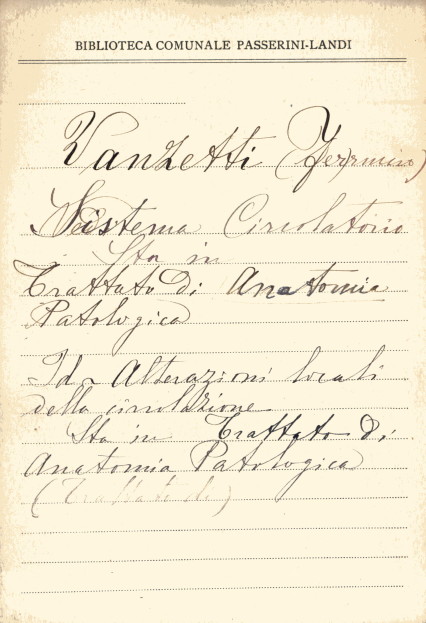 BIBLIOTECA COMUNALE PASSERINI-LANDI
Vanzetti (Fermino)
Sistema Circolatorio
Sta in
Trattato Di Anatomia
Patologica
Id - Alterazioni locali
della circolazione
Sta in Trattato Di
Anatomia Patologica
(Trattato di)